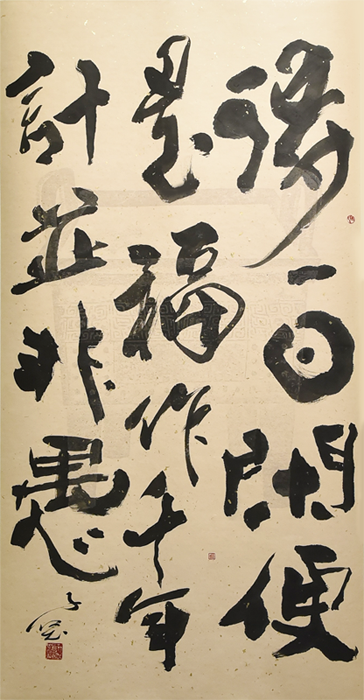 得一日閑便
是福作千年
計並非愚